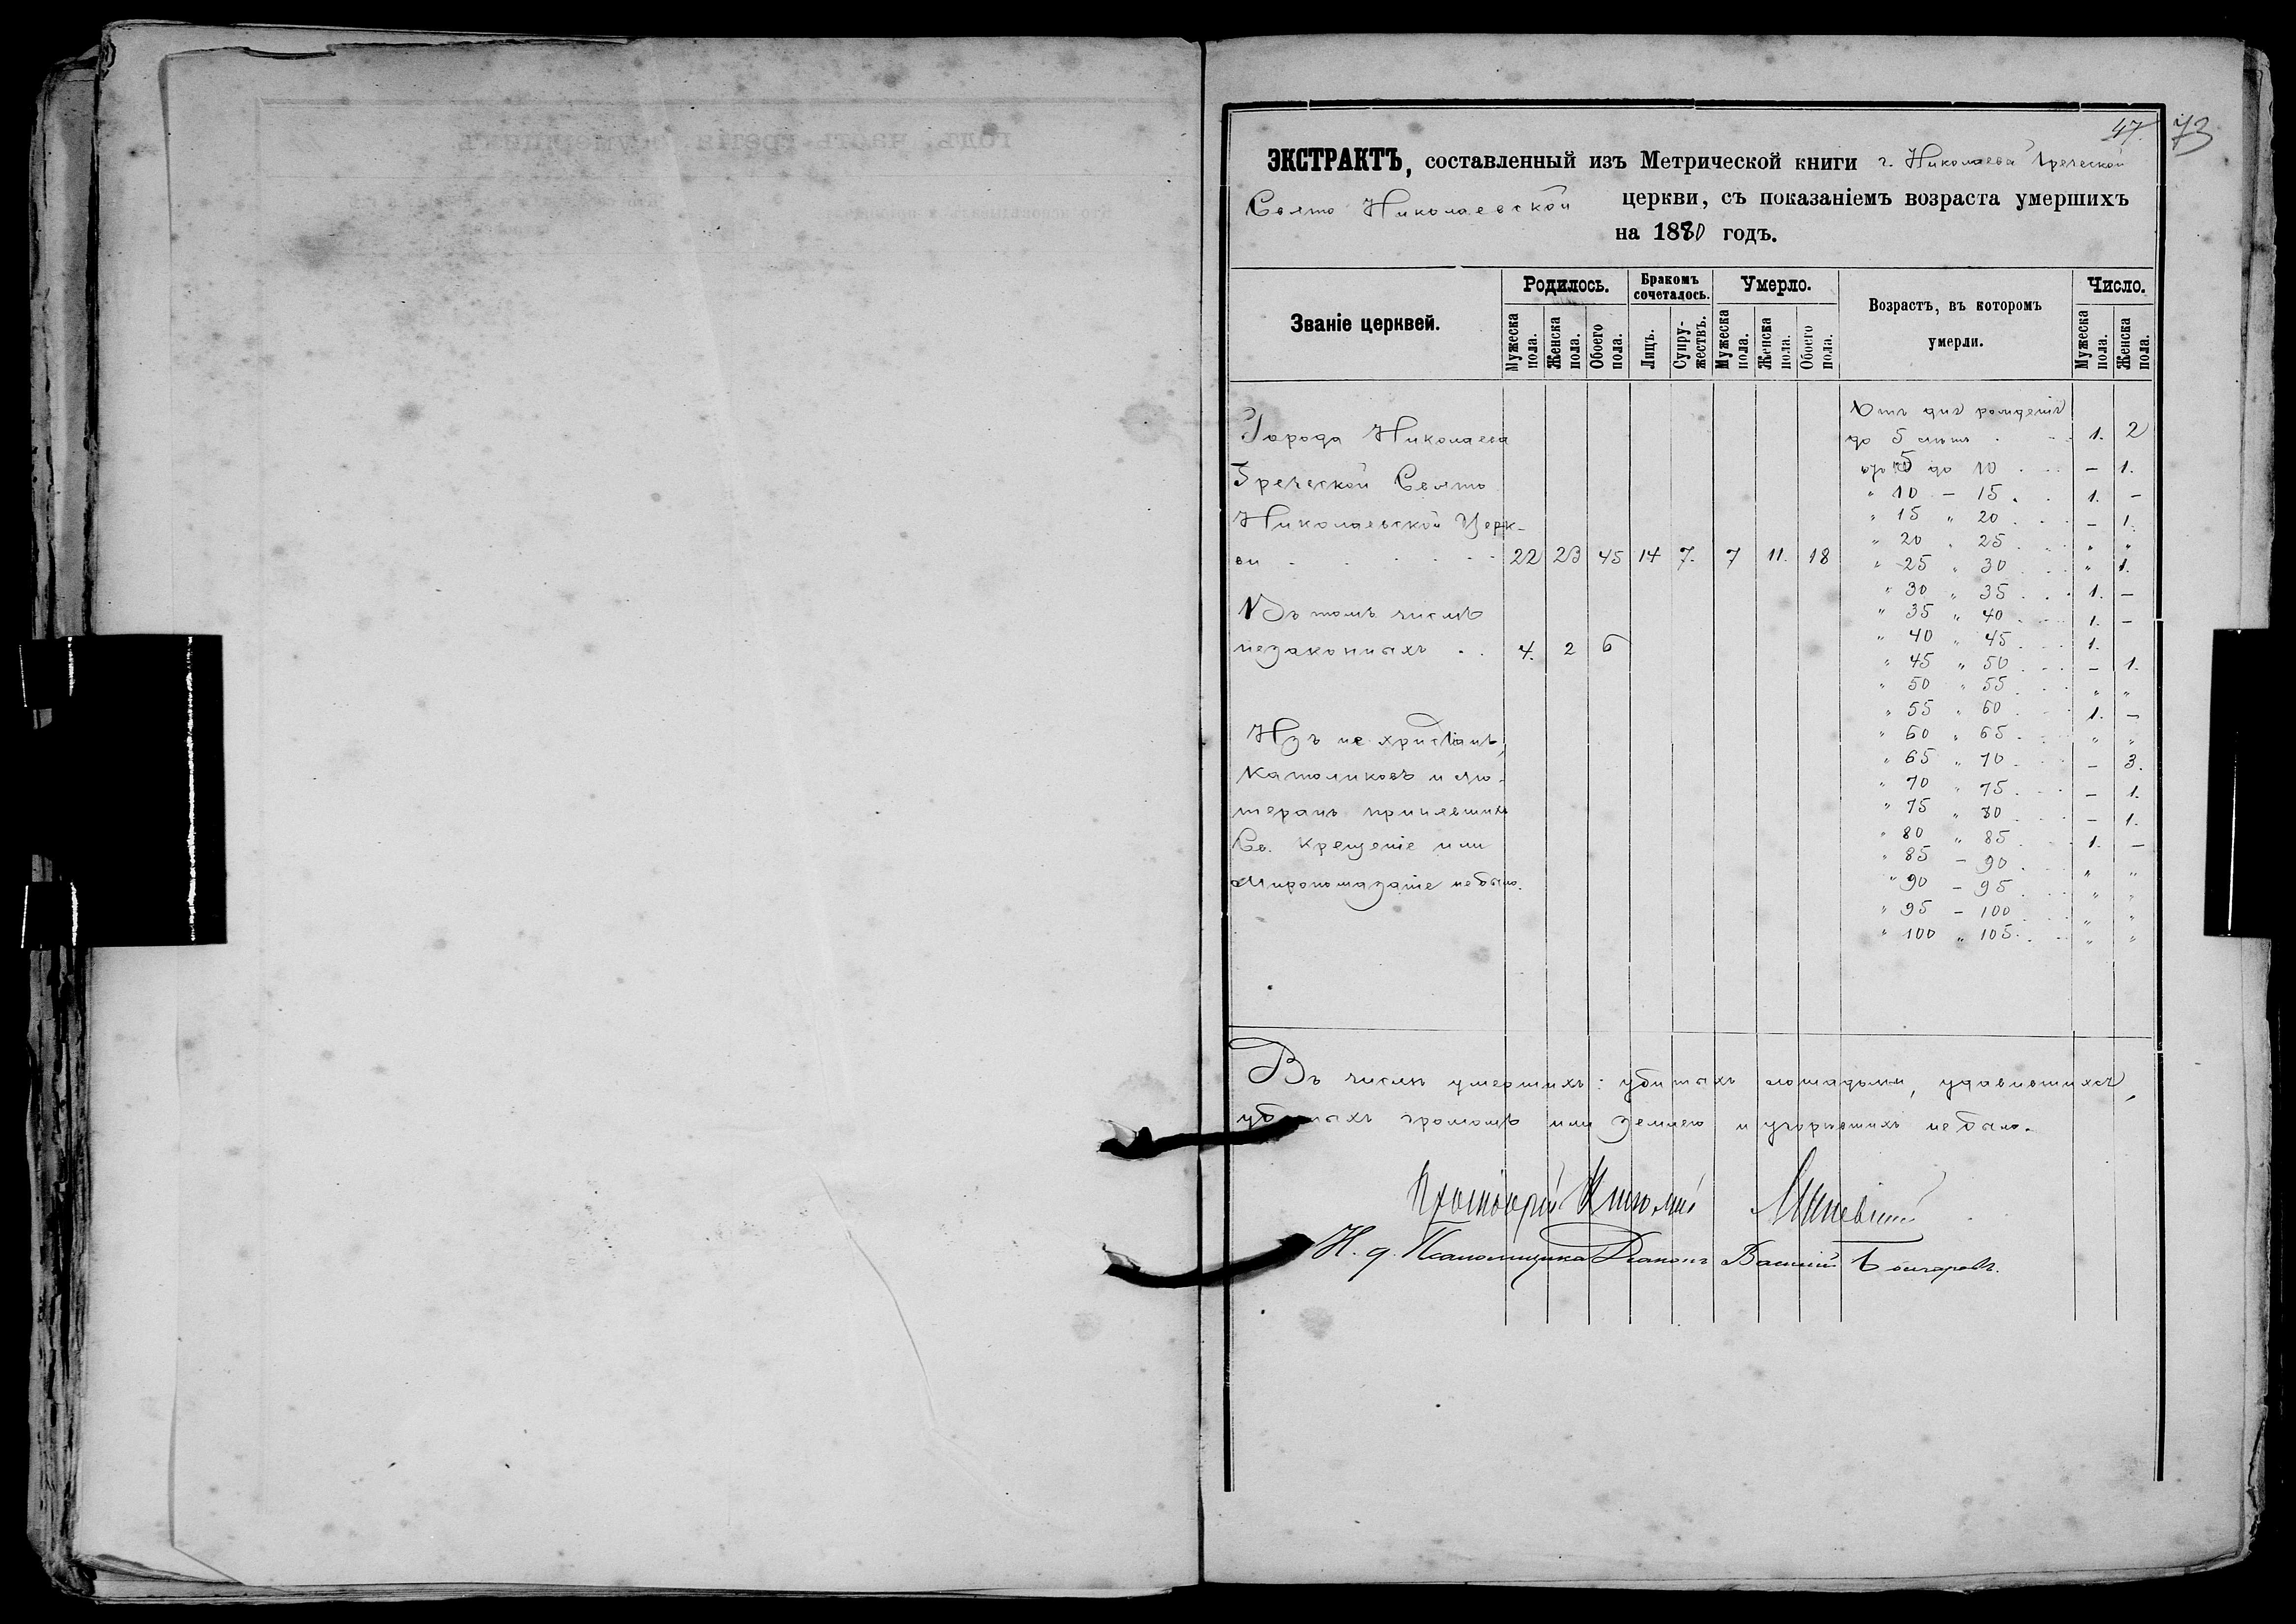 47. 73
ЭКСТРАКТЪ, составленный изъ Метрической книги г. Николаева Греческой
Свято Николаевской церкви, съ показаніемъ возраста умершихъ
на 1880 годъ.
Званіе церквей.
Родилось.
Бракомъ сочеталось.
Умерло.
Возрастъ, въ которомъ умерли.
Число.
Мужеска пола.
Женска пола.
Обоего пола.
Лицъ.
Супружествъ.
Мужеска пола.
Женска пола.
Обоего пола.
Мужеска пола.
Женска пола.
Города Николаева
Греческой Свято
Николаевской Церк-
ви . . . . . 22 23 45 14 7. 7 11. 18
Въ томъ числѣ
незаконныхъ . . 4. 2 6
Изъ не христіанъ,
Католиковъ и лю-
теранъ принявшихъ
Св. Крещеніе или
Миропомазаніе не было.
Отъ дня рожденія
до 5 лѣтъ . . . 1. 2
5 до 10 . . . – 1.
" 10 – 15 . . 1. –
" 15 " 20 . . . – 1.
" 20 " 25 . . . " "
" 25 " 30 . . . " 1.
" 30 " 35 . . . 1. –
" 35 " 40 . . . 1. –
" 40 " 45 . . . 1.
" 45 " 50 . . . – 1.
" 50 " 55 . . . " "
" 55 " 60 . . . 1. –
" 60 " 65 . . . " "
" 65 " 70 . . . – 3.
" 70 " 75 . . . – 1.
" 75 " 80 . . . – 1.
" 80 " 85 . . . 1. –
" 85 – 90 . . . " "
" 90 – 95 . . . " "
" 95 – 100 . . . " "
" 100 " 105 . . . " "
Въ числѣ умершихъ: убитыхъ лошадьми, удавившихся,
убитыхъ громомъ или землею и угорѣвшихъ не было.
Протоіерей Николай
И. д. Псаломщика Діаконъ Василій